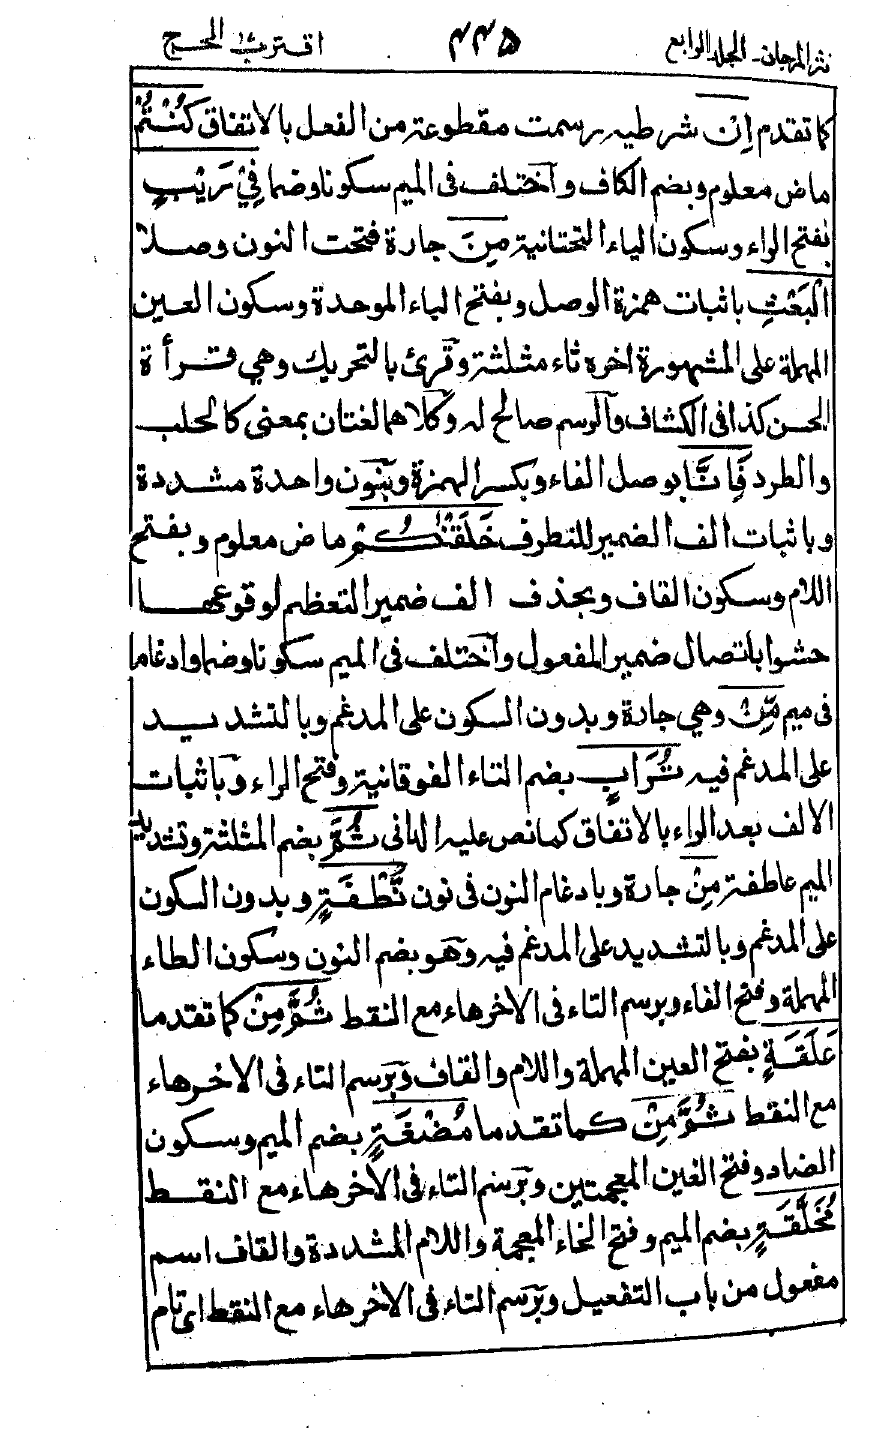 نثر المرجان۔ الجلد الرابع ۴۴۵ اقترب ۱۷ الحج
كما تقدم اِنْ شرطيه رسمت مقطوعة من الفعل بالاتفاق كُنْتُمْ
ماض معلوم وبضم الكاف واختلف فى الميم سكونا وضما فِيْ رَيْبٍ
بفتح الراء وسكون الياء التحتانية مِنَ جارة فتحت النون وصلا
الْبَعْثِ باثبات همزة الوصل وبفتح الباء الموحدة وسكون العين
المهملة على المشهورة اخره ثاء مثلثة وقرئ بالتحريك وهي قرأة
الحسن كذا فى الكشاف والرسم صالح له وكلاهما لغتان بمعنى كالحلب
والطرد فَاِنَّا بوصل الفاء وبكسر الهمزة وبنون واحدة مشددة
وباثبات الف الضمير للتطرف خَلَقْنٰكُمْ ماض معلوم وبفتح
اللام وسكون القاف وبحذف الف ضمير التعظم لوقوعها
حشوا باتصال ضمير المفعول واختلف فى الميم سكونا وضما وادغاما
فى ميم مِّنْ وهي جارة وبدون السكون على المدغم وبالتشديد
على المدغم فيه تُرَابٍ بضم التاء الفوقانية وفتح الراء وباثبات
الالف بعد الراء بالاتفاق كما نص عليه الدانى ثُمَّ بضم المثلثة وتشديد
الميم عاطفة مِنْ جارة وبادغام النون فى نون نُّطْفَةٍ وبدون السكون
على المدغم وبالتشديد على المدغم فيه وهو بضم النون وسكون الطاء
المهملة وفتح الفاء وبرسم التاء فى الاخر هاء مع النقط ثُمَّ مِنْ كما تقدما
عَلَقَةٍ بفتح العين المهملة واللام والقاف وبرسم التاء فى الاخر هاء
مع النقط ثُمَّ مِنْ كما تقدما مُضْغَةٍ بضم الميم وسكون
الضاد وفتح الغين المعجمتين وبرسم التاء فى الاخر هاء مع النقط
مُخَلَّقَةٍ بضم الميم وفتح الخاء المعجمة واللام المشددة والقاف اسم
مفعول من باب التفعيل وبرسم التاء فى الاخر هاء مع النقط اى تام